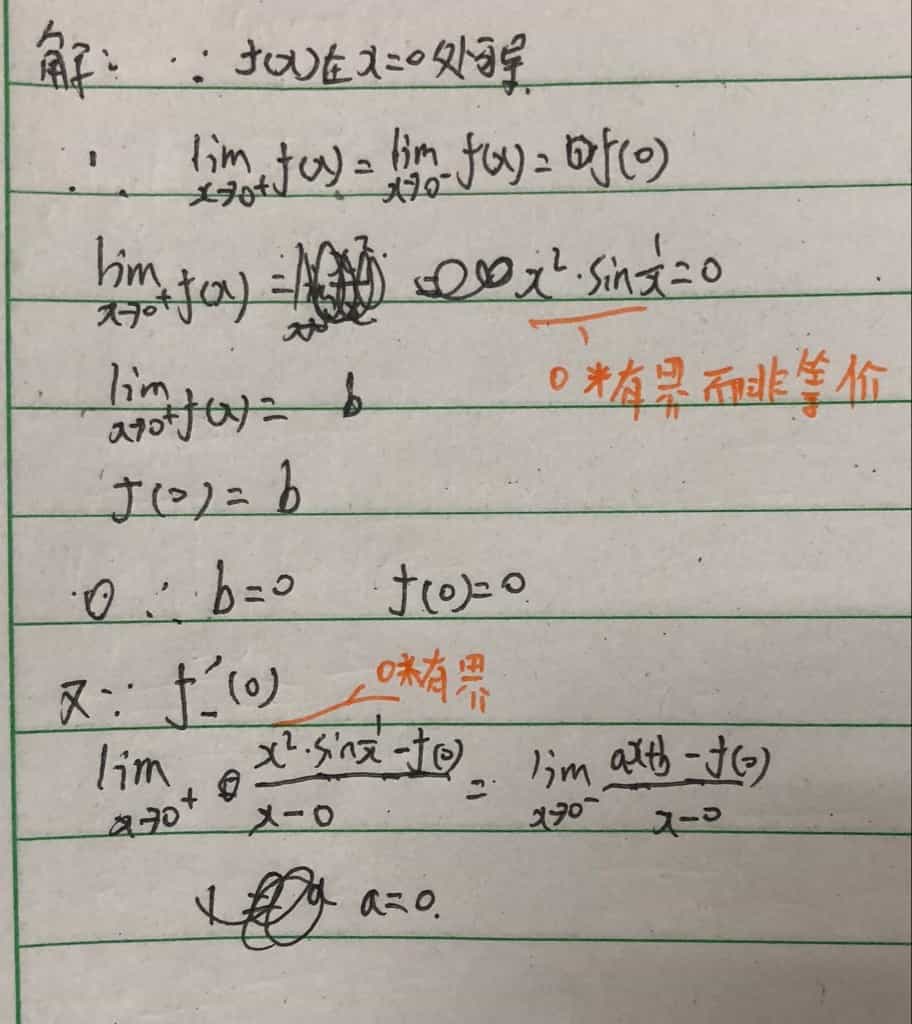 解: ∵ f(x)在x=0处可导.
∴ lim x→0⁺ f(x) = lim x→0⁻ f(x) = f(0)
lim x→0⁺ f(x) = x²·sin 1/x = 0
0*有界而非等价
lim x→0⁺ f(x) = b
f(0) = b
∴ b=0 f(0)=0
又∵ f'₋(0)
0*有界
lim x→0⁺ (x²·sin 1/x - f(0))/(x-0) = lim x→0⁻ (ax+b - f(0))/(x-0)
a=0.